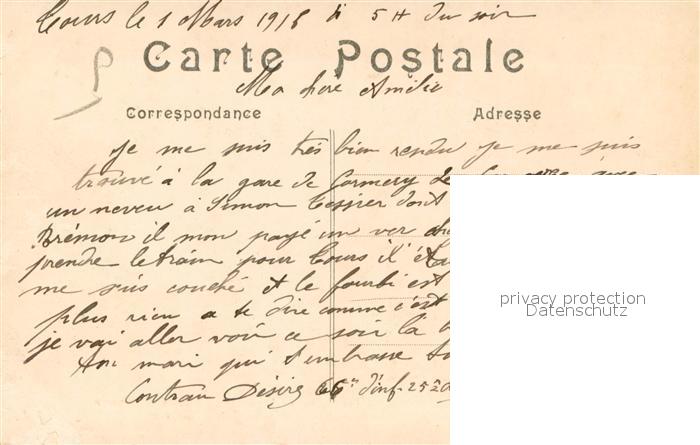 Tours le 1 Mars 1915 à 5H du soir
Carte Postale
Ma chère Amélie
Correspondance Adresse
Je me suis très bien rendu je me suis
trouvé à la gare de Cormery
un neveu à Simon Tessier dont
Brémon il mon payé un ver
prendre le train pour Tours il
me suis couché et le fourbi est
plus rien a te dire comme c'est
je vai aller voir ce soir la
ton mari qui t'embrasse
Désiré 66e d'inf. 25e
privacy protection
Datenschutz